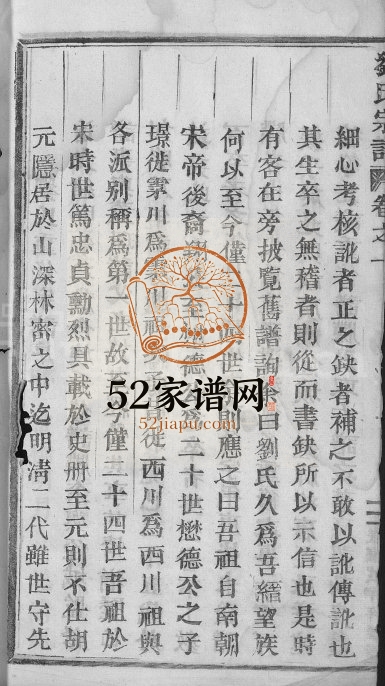 劉氏宗譜 卷之一
細心考核訛者正之缺者補之不敢以訛傳訛也
其生卒之無稽者則從而書缺所以示信也是時
有客在旁披覽舊譜詢余曰劉氏久爲吾縉望族
何以至今僅二十四世則應之曰吾祖自南朝
宋帝後裔至懋德公爲二十世懋德公之子
璟徙 川爲 川祖 徙西川爲西川祖與
各派别稱爲第一世故至 僅二十四世吾祖於
宋時世篤忠貞勳烈具載於史册至元則不仕胡
元隱居於山深林密之中迄明清二代雖世守先
52家谱网
52jiapu.com